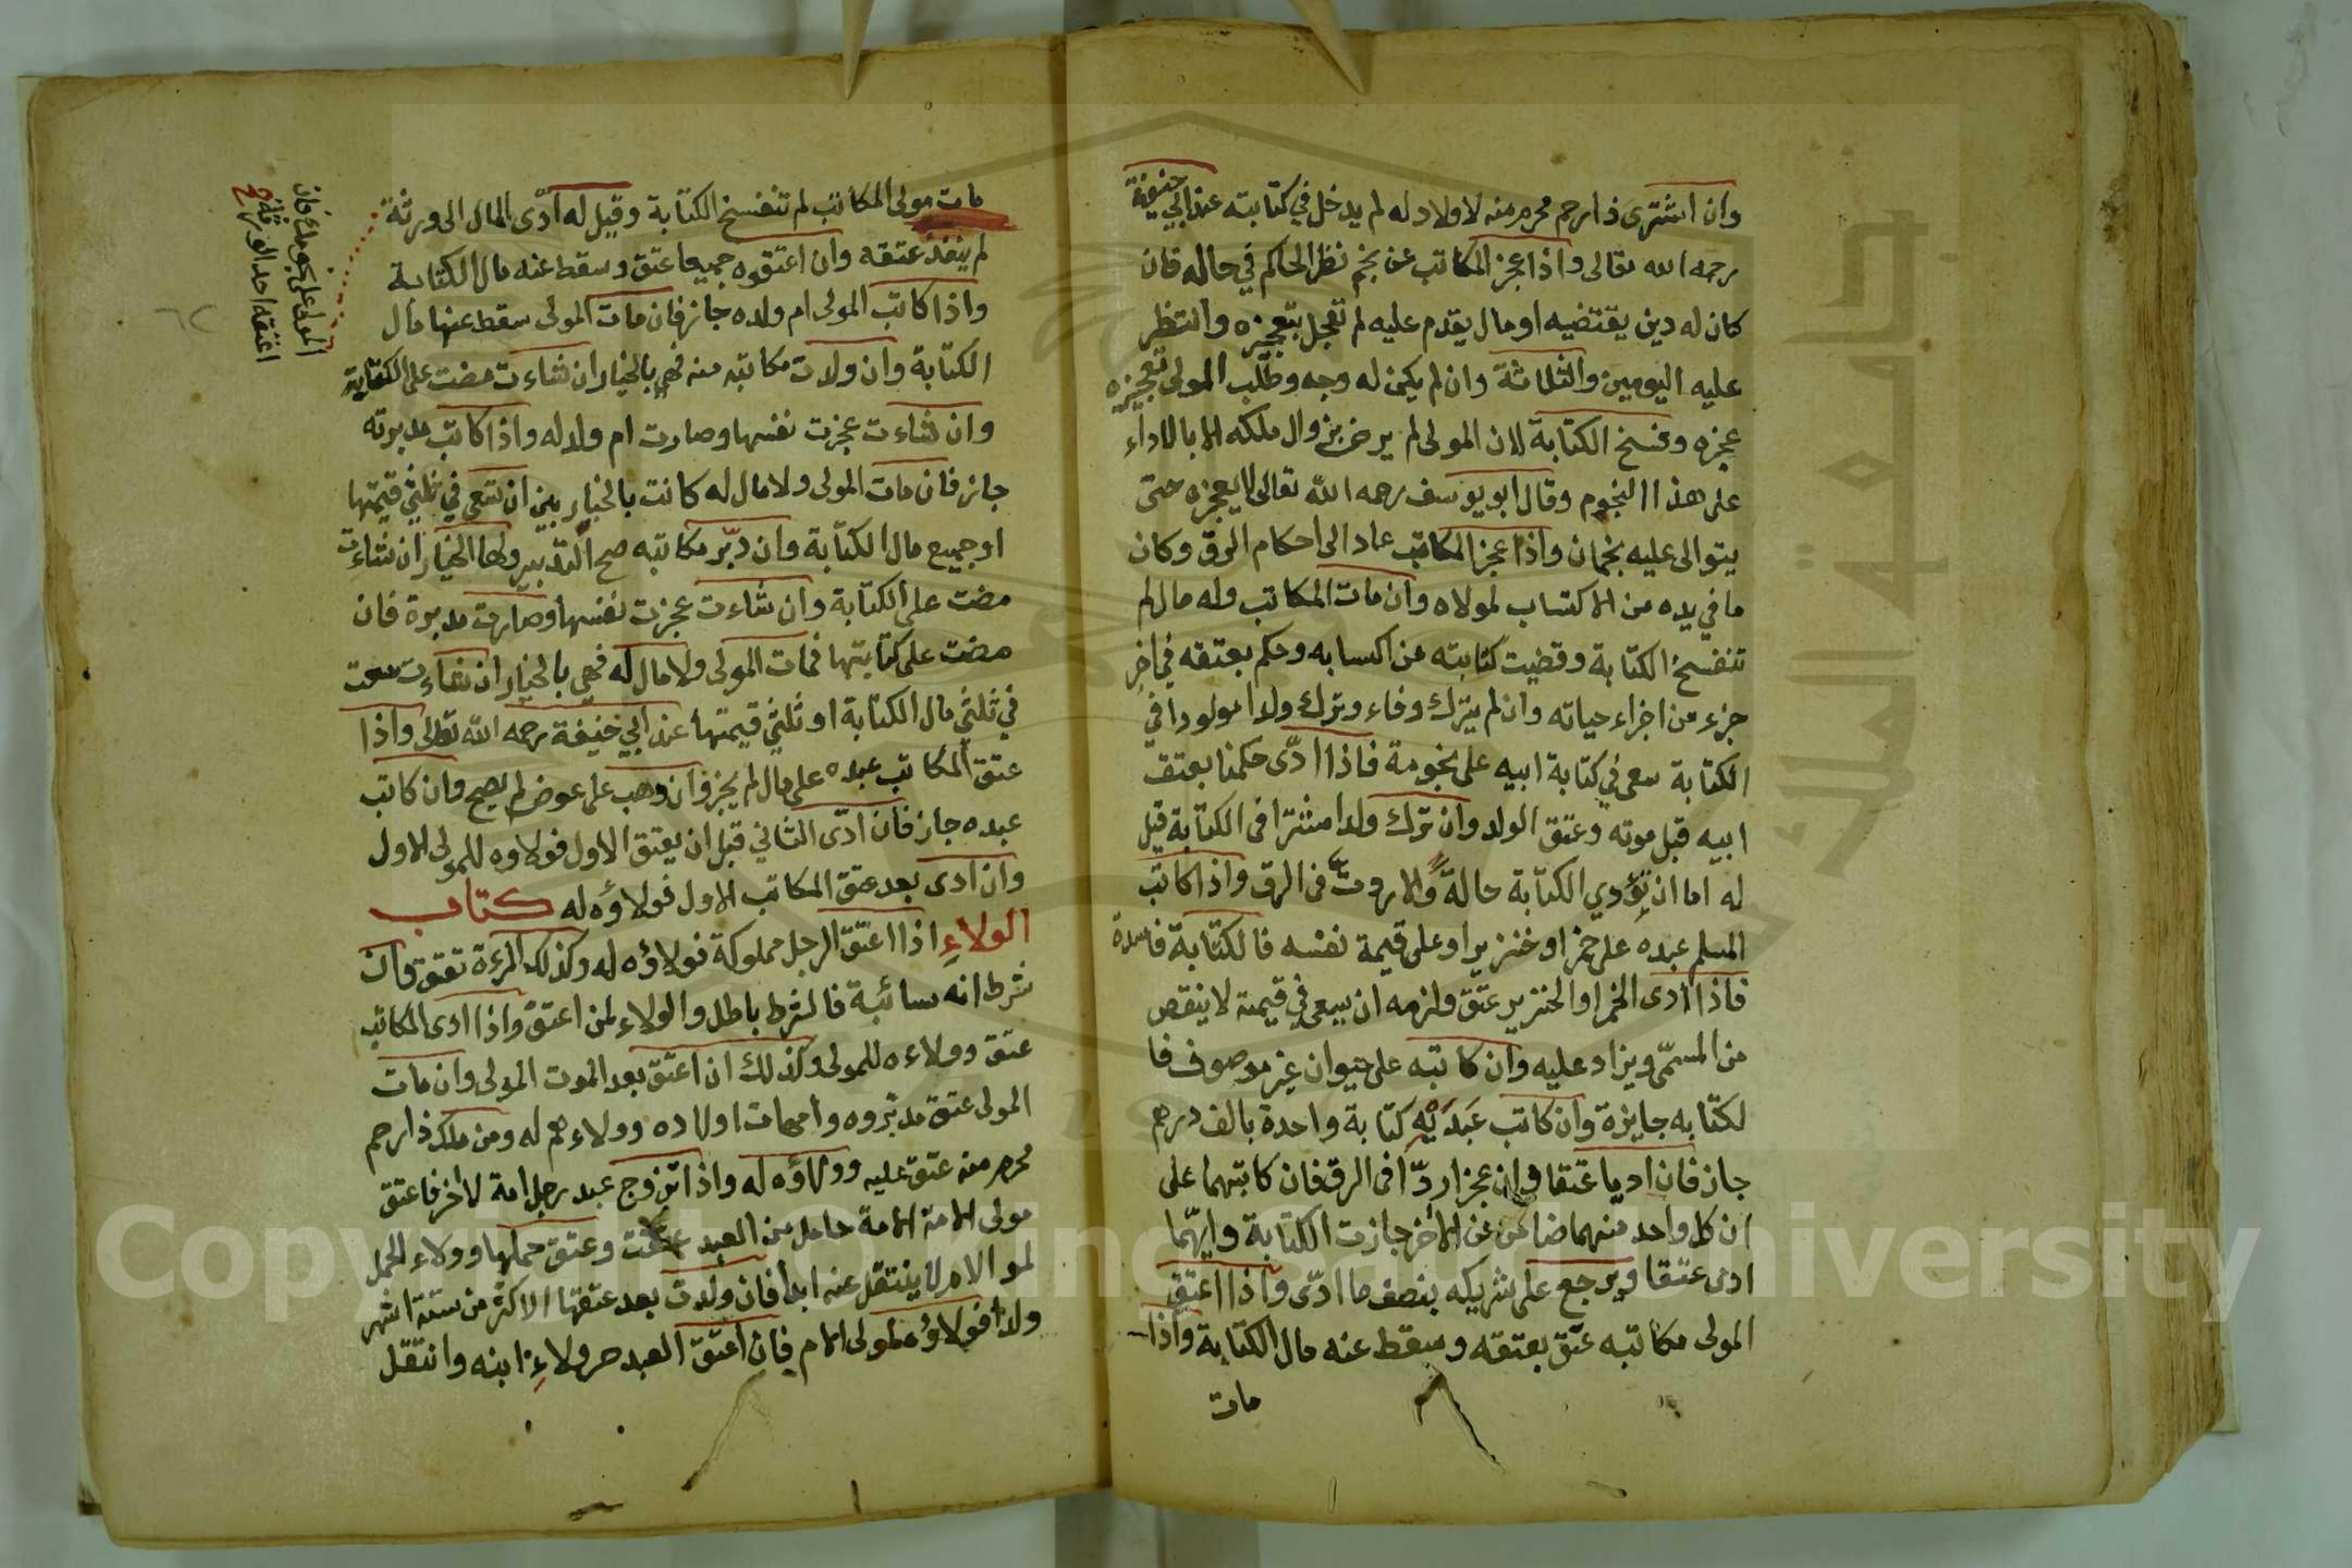 وان اشترى ذا رحم محرم منه لا ولاد له لم يدخل في كتابته عند ابي حنيفة
رحمه الله تعالى واذا عجز المكاتب عن نجم نظر الحاكم في حاله فان
كان له دين يقتضيه او مال يقدم عليه لم تعجل بتعجيزه وانتظر
عليه اليومين والثلاثة وان لم يكن له وجه وطلب المولى تعجيزه
عجزه وفسخ الكتابة لان المولى لم يرض بزوال ملكه الا بالاداء
على هذا النجوم وقال ابو يوسف رحمه الله تعالى لا يعجزه حتى
يتوالى عليه نجمان واذا عجز المكاتب عاد الى احكام الرق وكان
ما في يده من الاكتساب لمولاه وان مات المكاتب وله مال لم
تنفسخ الكتابة وقضيت كتابته عن اكسابه وحكم بعتقه في اخر
جزء من اجزاء حياته وان لم يترك وفاء وترك ولدا مولودا في
الكتابة سعى في كتابة ابيه على نجومه فاذا ادّى حكمنا بعتق
ابيه قبل موته وعتق الولد وان ترك ولدا مشترا في الكتابة قيل
له اما ان تؤدي الكتابة حالة والا رددت في الرق واذا كاتب
المسلم عبده على خمر او خنزير او على قيمة نفسه فالكتابة فاسدة
فاذا ادى الخمر او الخنزير عتق ولزمه ان يسعى في قيمته لا ينقص
من المسمّى ويزاد عليه وان كاتبه على حيوان غير موصوف فا
لكتابه جايزة وان كاتب عَبدَيْهِ كتابة واحدة بالف درهم
جاز فان اديا عتقا وان عجزا ردّا في الرق فان كاتبهما على
ان كل واحد منهما ضامن عن الاخر جازت الكتابة وايهّما
ادى عتقا ويرجع على شريكه بنصف ما ادّى واذا اعتق
المولى مكاتبه عتق بعتقه وسقط عنه مال الكتابة واذا
مات
مات مولى المكاتب لم تنفسخ الكتابة وقيل له ادّى المال الى ورثة
المولى على نجومه فان
اعتقه احد الورثة صح
لم ينفذ عتقه وان اعتقوه جميعا عتق وسقط عنه مال الكتابة
واذا كاتب المولى ام ولده جاز فان مات المولى سقط عنها مال
الكتابة وان ولدت مكاتبه منه فهي بالخيار ان شاءت مضت على الكتابة
وان شاءت عجزت نفسها وصارت ام ولد له واذا كاتب مدبرته
جاز فان مات المولى ولا مال له كانت بالخيار بين ان تسعى في ثلثي قيمتها
او جميع مال الكتابة وان دبّر مكاتبه صح التدبير ولها الخيار ان شاءت
مضت على الكتابة وان شاءت عجزت نفسها وصارت مدبرة فان
مضت على كتابتها فمات المولى ولا مال له فهي بالخيار ان شاءت سعت
في ثلثي مال الكتابة او ثلثي قيمتها عند ابي حنيفة رحمه الله تعالى واذا
عتق المكاتب عبده على مال لم يجز وان وهب على عوض لم يصح وان كاتب
عبده جاز فان ادّى الثاني قبل ان يعتق الاول فولاوه للمولى الاول
وان ادى بعد عتق المكاتب الاول فولاؤه له كتاب
الولاء اذا اعتق الرجل مملوكه فولاؤه له وكذلك المرءة تعتق فان
شرط انه سائبة فالشرط باطل والولاء لمن اعتق واذا ادى المكاتب
عتق وولاءه للمولى وكذلك ان اعتق بعد الموت المولى وان مات
المولى عتق مدبّروه وامهات اولاده وولاءهم له ومن ملك ذا رحم
محرم منه عتق عليه وولاؤه له واذا تزوج عبد رجل امة لاخر فاعتق
مولى الامة الامة حامل من العبد عتقت وعتق حملها وولاء الحمل
لمولا الام لا ينتقل عنه ابدا فان ولدت بعد عتقها لاكثر من ستة اشهر
ولدا فولاؤه لمولى الام فان اعتق العبد جر ولاء ابنه وانتقل
Copyright © King Saud University
جامعة الملك